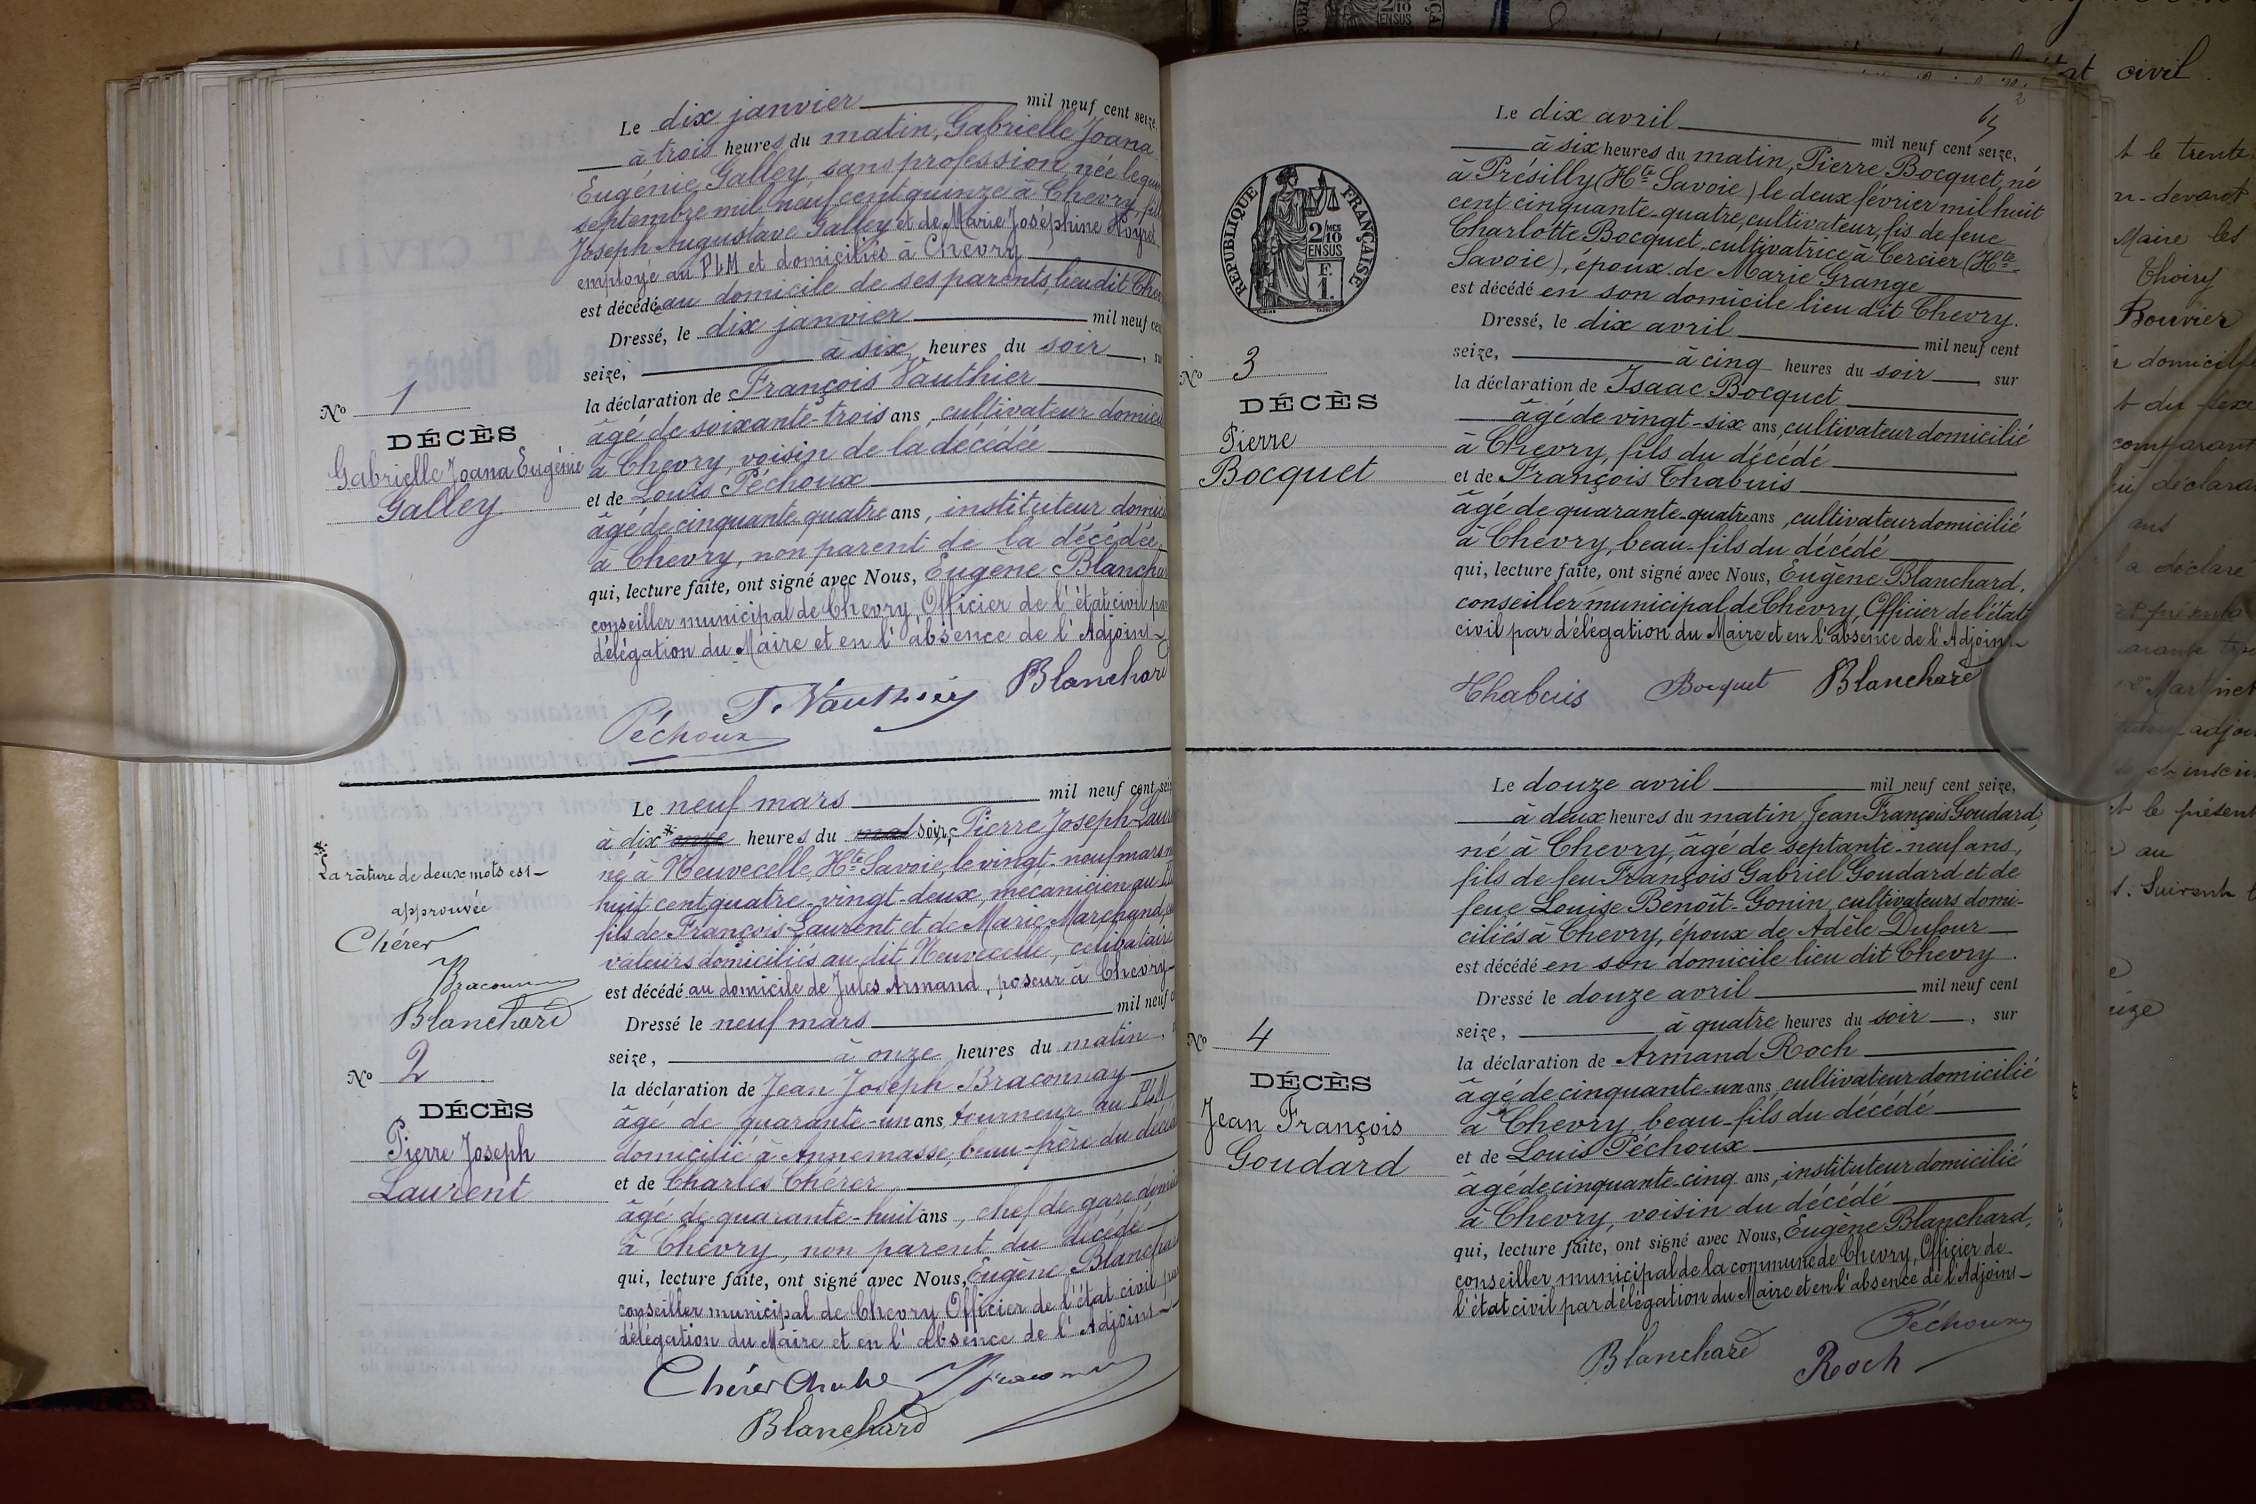 Le dix janvier mil neuf cent seize,
à trois heures du matin, Gabrielle Joana
Eugénie Galley, sans profession, née le
septembre mil neuf cent quinze à Chevry,
Joseph Augustave Galley et de Marie Joséphine
employé au PLM et domiciliés à Chevry
est décédée au domicile de ses parents, lieu dit
Dressé, le dix janvier mil neuf
seize, à six heures du soir
la déclaration de François Vauthier
âgé de soixante-trois ans, cultivateur
à Chevry, voisin de la décédée
et de Louis Péchoux
âgé de cinquante quatre ans, instituteur
à Chevry, non parent de la décédée,
qui, lecture faite, ont signé avec Nous, Eugène
conseiller municipal de Chevry Officier de l'état civil
délégation du Maire et en l'absence de l'Adjoint
F. Vauthier Blanchard
Péchoux
No 1
DÉCÈS
Gabrielle Joana Eugénie
Galley
Le neuf mars mil neuf cent
à dix* onze heures du mat soir, Pierre Joseph
né à Neuvecelle, Hte Savoie, le vingt-neuf mars
huit cent quatre-vingt-deux, mécanicien au
fils de François Laurent et de Marie Marchand,
vateurs domiciliés au dit Neuvecelle, célibataire
est décédé au domicile de Jules Armand, poseur à Chevry
Dressé le neuf mars mil neuf
seize, à onze heures du matin,
la déclaration de Jean Joseph Braconnay
âgé de quarante-un ans tourneur au PLM
domicilié à Annemasse, beau-frère du
et de Charles Chérer
âgé de quarante-huit ans, chef de gare
à Chevry, non parent du décédé
qui, lecture faite, ont signé avec Nous, Eugène
conseiller municipal de Chevry Officier de l'état civil
délégation du Maire et en l'absence de l'Adjoint
Chérer
Blanchard
*
La râture de deux mots est
approuvée
Chérer
Blanchard
No 2
DÉCÈS
Pierre Joseph
Laurent
REPUBLIQUE FRANÇAISE
2/10
EN SUS
Le dix avril mil neuf cent seize,
à six heures du matin, Pierre Bocquet, né
à Présilly (Hte Savoie) le deux février mil huit
cent cinquante-quatre, cultivateur, fis de feue
Charlotte Bocquet cultivatrice à Cercier (Hte
Savoie), époux de Marie Grange
est décédé en son domicile lieu dit Chevry.
Dressé, le dix avril mil neuf cent
seize, à cinq heures du soir, sur
la déclaration de Isaac Bocquet
âgé de vingt-six ans, cultivateur domicilié
à Chevry, fils du décédé
et de François Chabuis
âgé de quarante-quatre ans, cultivateur domicilié
à Chevry, beau-fils du décédé
qui, lecture faite, ont signé avec Nous, Eugène Blanchard,
conseiller municipal de Chevry, Officier de l'état
civil par délégation du Maire et en l'absence de l'Adjoint
Chabuis Bocquet Blanchard
No 3
DÉCÈS
Pierre
Bocquet
Le douze avril mil neuf cent seize,
à deux heures du matin Jean François Goudard,
né à Chevry, âgé de septante-neuf ans,
fils de feu François Gabriel Goudard et de
feue Louise Benoît-Gonin, cultivateurs domi-
ciliés à Chevry, époux de Adèle Dufour
est décédé en son domicile lieu dit Chevry.
Dressé le douze avril mil neuf cent
seize, à quatre heures du soir, sur
la déclaration de Armand Roch
âgé de cinquante-un ans, cultivateur domicilié
à Chevry, beau-fils du décédé
et de Louis Péchoux
âgé de cinquante-cinq ans, instituteur domicilié
à Chevry, voisin du décédé
qui, lecture faite, ont signé avec Nous, Eugène Blanchard,
conseiller municipal de la commune de Chevry, Officier de
l'état civil par délégation du Maire et en l'absence de l'Adjoint
Péchoux
Blanchard Roch
No 4
DÉCÈS
Jean François
Goudard
civil.
t le trente
n- devant
Maire les
Thoiry
Bouvier
domicile
t du sexe
comparant
déclara
ans
a déclaré
Martinet
adjoi
et le présent
au
Suivent